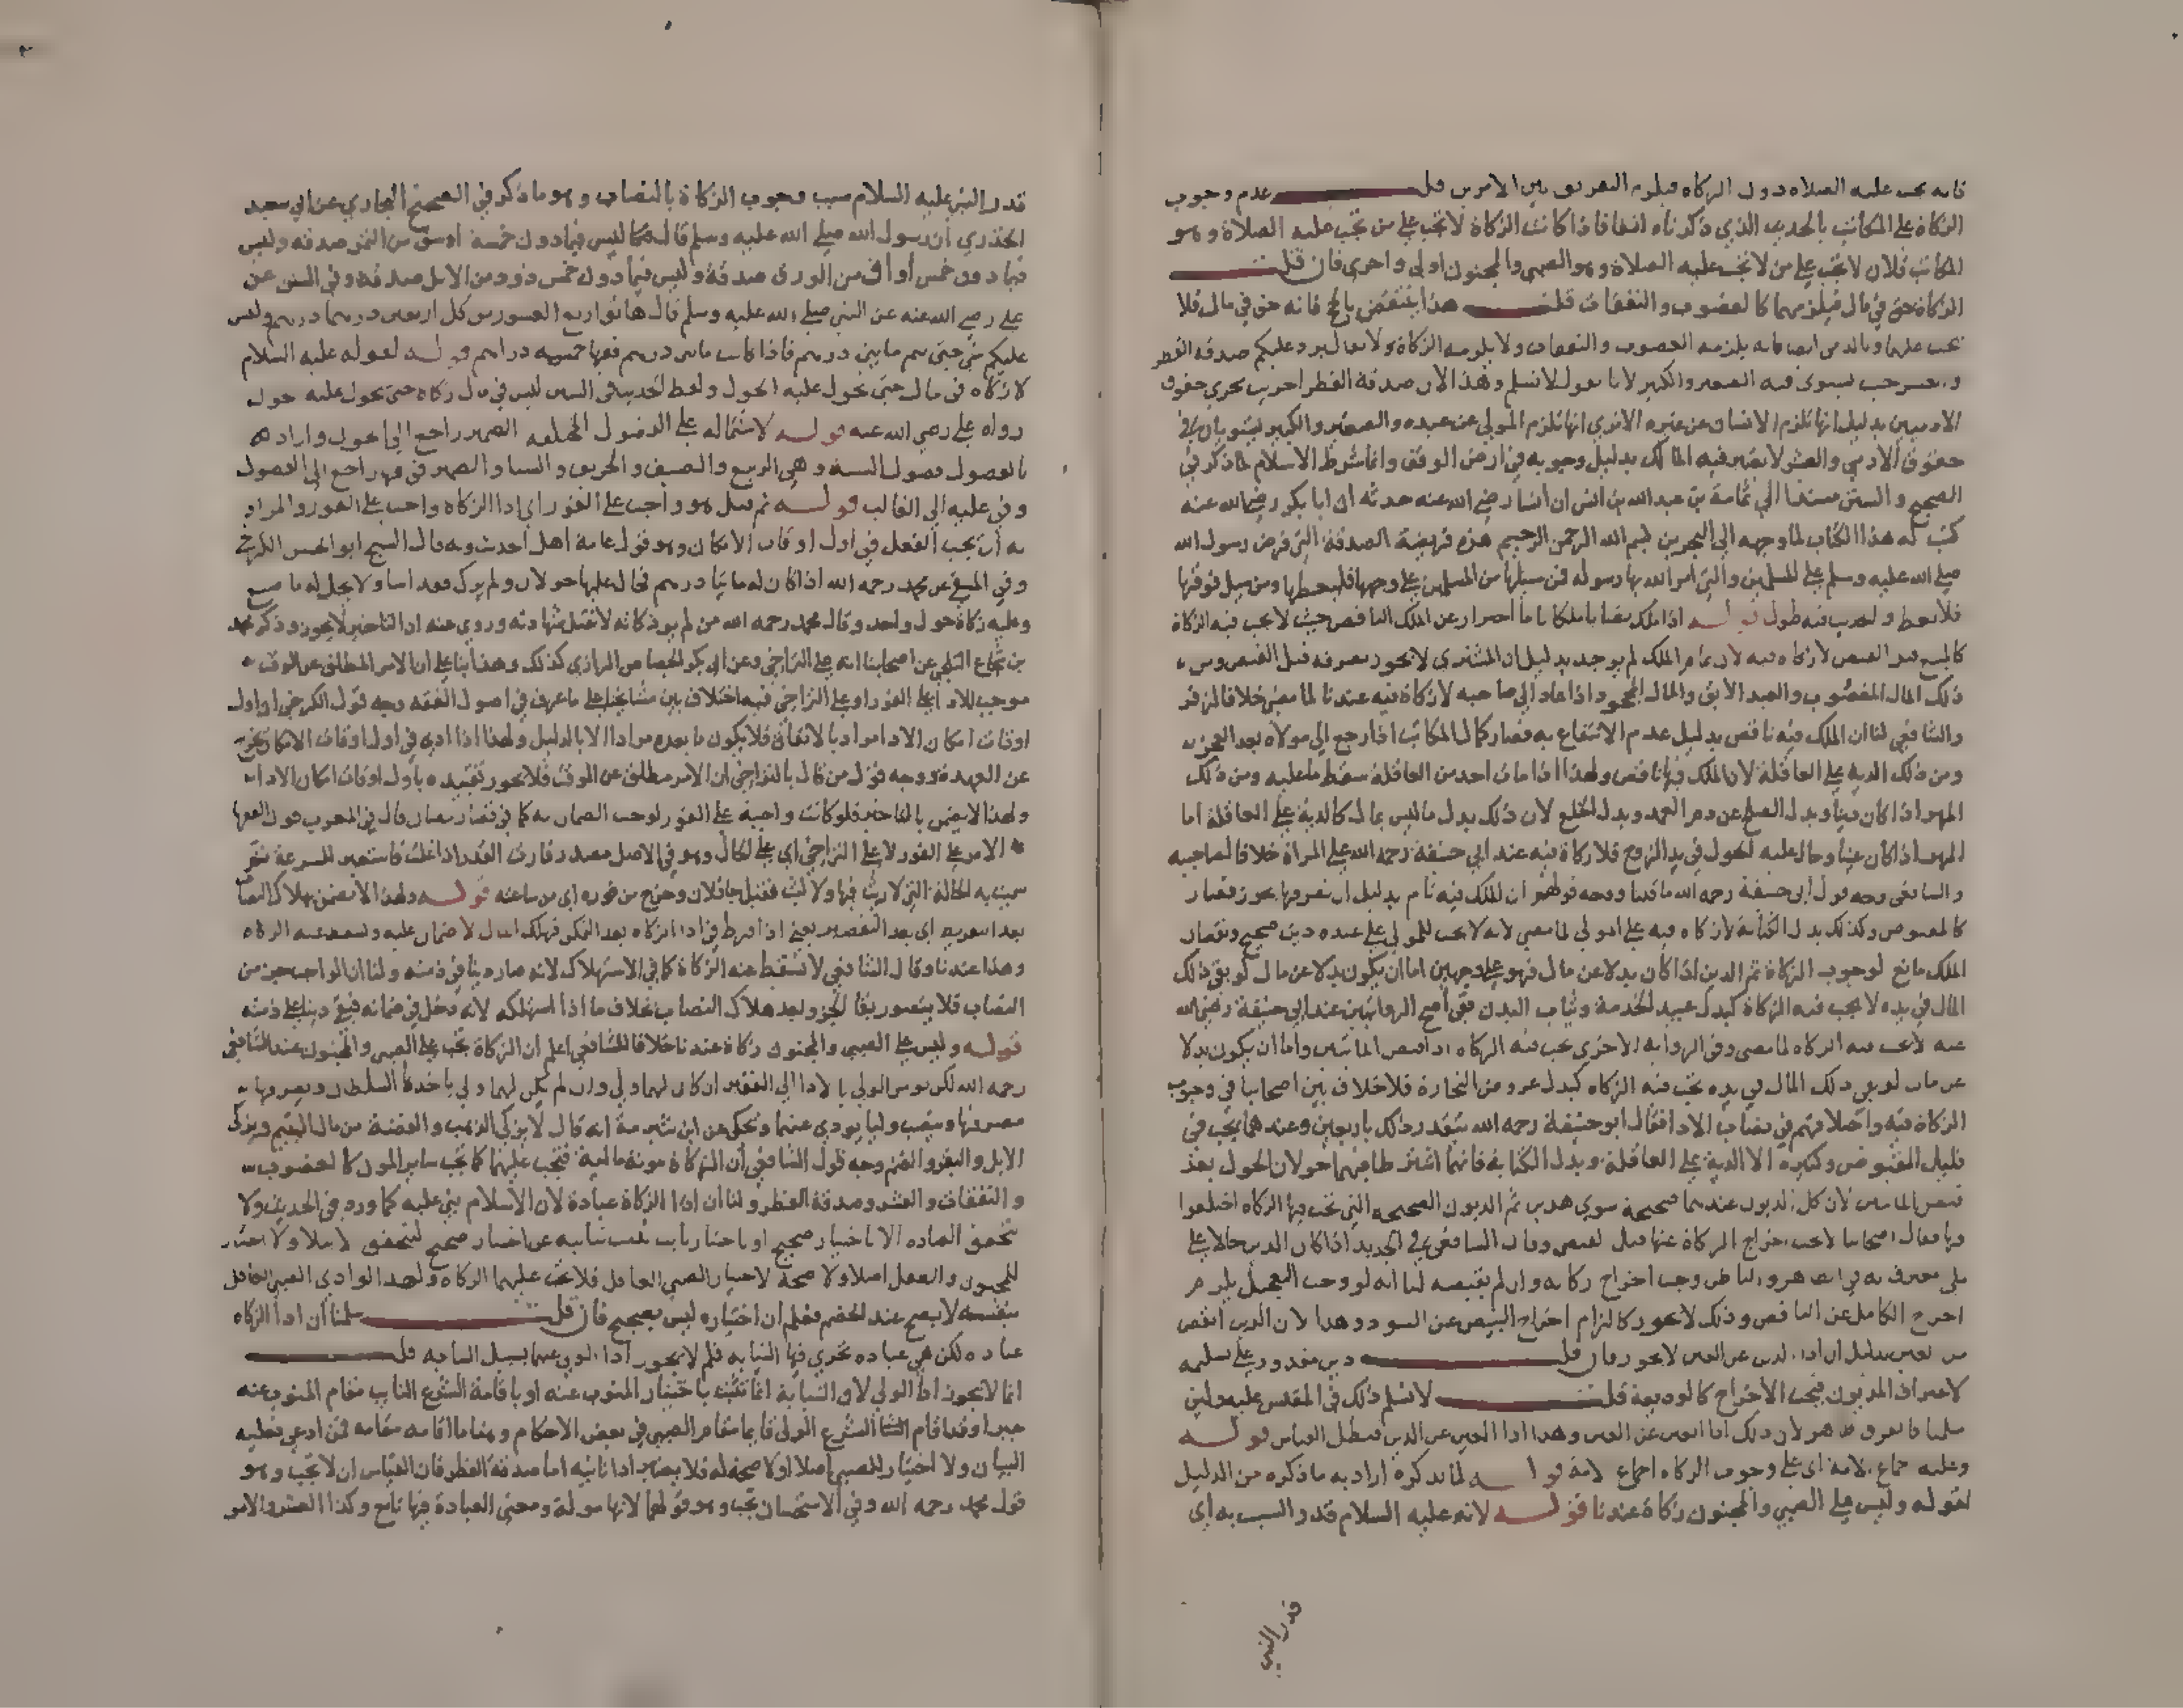 فانه تجب عليه الصلاه دون الزكاه فيلزم التفريق بين الامرين قلت عدم وجوب
الزكاة على المكاتب بالحديث الذي ذكرناه انفا فاذا كانت الزكاة لا تجب على من تجب عليه الصلاة وهو
المكاتب فلان لا تجب على من لا تجب عليه الصلاة وهو الصبي والمجنون اولى واحرى فان قلت
الزكاة حق في مال فيلزمهما كالعشوب والنفقات قلت هذا ينتقض بالحج فانه حق في مال فلا
يجب عليهما وبالدين ايضا فانه يلزمه العشوب والنفقات ولا يلزمه الزكاة ولا يقال يرد عليكم صدقة الفطر
حيث يستوي فيه الصغير والكبير لانا نقول لا نسلم وهذا لان صدقة الفطر اجريت مجرى حقوق
الادميين بدليل انها تلزم الانسان عن غيره الا ترى انها تلزم المولى عن عبده والصغير والكبير يستويان في
حقوق الادمي والعشر لا يعتبر فيه المالك بدليل وجوبه في ارض الوقف وانما شرط الاسلام لما ذكر في
الصحيح والسنن مسندا الى ثمامة بن عبد الله بن انس ان انسا رضي الله عنه حدثه ان ابا بكر رضي الله عنه
كتب له هذا الكتاب لما وجهه الى البحرين بسم الله الرحمن الرحيم هذه فريضة الصدقة التي فرض رسول الله
صلى الله عليه وسلم على المسلمين والتي امر الله بها رسوله فمن سئلها من المسلمين على وجهها فليعطها ومن سئل فوقها
فلا يعط والحديث فيه طول قوله اذا ملك نصابا ملكا تاما احتراز عن الملك الناقص حيث لا تجب فيه الزكاة
كالمبيع قبل القبض لا زكاه فيه لان تمام الملك لم يوجد بدليل ان المشتري لا يجوز تصرفه قبل القبض ومن
ذلك المال المغصوب والعبد الابق والمال المجحود اذا عاد الى صاحبه لا زكاة فيه عندنا لما مضى خلافا لزفر
والشافعي لنا ان الملك فيه ناقص بدليل عدم الانتفاع به فصار كمال المكاتب اذا رجع الى مولاه بعد العجز
ومن ذلك الدية على العاقلة لان الملك فيها ناقص ولهذا اذا مات احد من العاقلة سقط ما عليه ومن ذلك
المهر اذا كان دينا وبدل الصلح عن دم العمد وبدل الخلع لان ذلك بدل ما ليس بمال كالدية على العاقلة اما
المهر اذا كان عينا وحال عليه الحول في يد الزوج فلا زكاة فيه عند ابي حنيفة رحمه الله على المراة خلافا لصاحبيه
والشافعي وجه قول ابي حنيفة رحمه الله ما قلنا ووجه قولهم ان الملك فيه تام بدليل ان تصرفها يجوز فصار
كالمغصوب وكذلك بدل الكتابة لا زكاه فيه على المولى لما مضى لانه لا يجب للمولى على عبده دين صحيح ونقصان
الملك مانع لوجوب الزكاة ثم الدين اذا كان بدلا عن مال فهو على وجهين اما ان يكون بدلا عن مال لو بقي ذلك
المال في يده لا يجب فيه الزكاة كبدل عبيد الخدمة وثياب البدن ففي اصح الروايتين عند ابي حنيفة رضي الله
عنه لا تجب فيه الزكاه لما مضى وفي الرواية الاخرى تجب فيه الزكاه اذا قبض المائتين واما ان يكون بدلا
عن مال لو بقي ذلك المال في يده تجب فيه الزكاه كبدل عروض التجارة فلا خلاف بين اصحابنا في وجوب
الزكاة فيه واختلافهم في نصاب الاداء فقال ابو حنيفة رحمه الله يتقدر ذلك باربعين وعندهما يجب في
قليل المقبوض وكثيره الا الدية على العاقلة وبدل الكتابة فانهما اشترطا فيهما حولان الحول بعد
قبض المائتين لان كل الديون عندهما صحيحة سوى هذين ثم الديون الصحيحه التي تجب فيها الزكاه اختلفوا
فيها فقال اصحابنا لا تجب اخراج الزكاة عنها قبل القبض وقال الشافعي في الجديد اذا كان الدين حالا على
ملي معترف به في الظاهر والباطن وجب اخراج زكاته وان لم يقبضه لنا انه لو وجب التعجيل يلزم
اخراج الكامل عن الناقص وذلك لا يجوز كالزام اخراج البيض عن السود وهذا لان الدين انقص
من العين بدليل ان اداء الدين عن العين لا يجوز فان قلت دين مقدور على تسليمه
لاعتراف المديون فيجب الاخراج كالوديعة قلت لا نسلم ذلك في المفلس عليه ولئن
سلمنا فالفرق ظاهر لان ذلك اداء العين عن العين وهذا اداء العين عن الدين فبطل القياس قوله
وعليه اجماع الامة اي على وجوب الزكاه اجماع الامة قوله لما نذكره اراد به ما ذكره من الدليل
لقوله وليس على الصبي والمجنون زكاة عندنا قوله لانه عليه السلام قدر السبب به اي
قدر النبي
قدر النبي عليه السلام سبب وجوب الزكاة بالنصاب وهو ما ذكر في الصحيح البخاري عن ابي سعيد
الخذري ان رسول الله صلى الله عليه وسلم قال ليس فيما دون خمسة اوسق من التمر صدقه وليس
فيما دون خمس اواق من الورق صدقة وليس فيما دون خمس ذود من الابل صدقة وفي السنن عن
علي رضي الله عنه عن النبي صلى الله عليه وسلم قال هاتوا ربع العشور من كل اربعين درهما درهم وليس
عليكم شي حتى يتم مايتي درهم فاذا كانت مايتي درهم ففيها خمسه دراهم قوله لقوله عليه السلام
لا زكاه في مال حتى يحول عليه الحول ولفظ الحديث في السنن ليس في مال زكاه حتى يحول عليه حول
رواه علي رضي الله عنه قوله لاشتماله على الفصول المختلفه الضمير راجع الى الحول واراد
بالفصول فصول السنة وهي الربيع والصيف والخريف والشتا والضمير في فيها راجع الى الفصول
وفي عليه الى الغالب قوله ثم قيل هو واجب على الفور اي اداء الزكاه واجب على الفور والمراد
به ان يجب الفعل في اول اوقات الامكان وهو قول عامة اهل الحديث وبه قال الشيخ ابو الحسن الكرخي
وفي المنتقى عن محمد رحمه الله اذا كان له مايتا درهم فحال عليها حولان ولم يزك فقد اسا ولا يحل له ما صنع
وعليه زكاة حول واحد وقال محمد رحمه الله من لم يود زكاته لا تقبل شهادته وروي عنه ان التاخير لا يجوز وذكر محمد
بن شجاع الثلجي عن اصحابنا انه على التراخي وعن ابي بكر الجصاص الرازي كذلك وهذا بنا على ان الامر المطلق عن الوقت
موجب للاداء على الفور او على التراخي فيه اختلاف بين مشايخنا على ما عرف في اصول الفقه وجه قول الكرخي ان اول
اوقات امكان الاداء مراد بالاتفاق فلا يكون ما بعده مرادا الا بالدليل ولهذا اذا ادى في اول اوقات الامكان يخرج
عن العهدة ووجه قول من قال بالتراخي ان الامر مطلق عن الوقت فلا يجوز تقييده باول اوقات امكان الاداء
ولهذا لا يضمن بالتاخير فلو كانت واجبة على الفور لوجب الضمان به كما في قضاء رمضان قال في المغرب قول الفقها
الامر على الفور لا على التراخي اي على الحال وهو في الاصل مصدر فارت القدر اذا غلت فاستعير للسرعة ثم
سميت به الحالة التي لا ريث فيها ولا لبث فقيل جا فلان وخرج من فوره اي من ساعته قوله ولهذا لا يضمن بهلاك النصاب
بعد التفريط اي بعد التقصير يعني اذا فرط في اداء الزكاه بعد التمكن فهلك المال لا ضمان عليه وتسقط عنه الزكاه
وهذا عندنا وقال الشافعي لا تسقط عنه الزكاة كما في الاستهلاك لانه صار دينا في ذمته ولنا ان الواجب جزء من
النصاب فلا يتصور بقا الجزء بعد هلاك النصاب بخلاف ما اذا استهلكه لانه دخل في ضمانه فبقي دينا على ذمته
قوله وليس على الصبي والمجنون زكاة عندنا خلافا للشافعي اعلم ان الزكاة تجب على الصبي والمجنون عند الشافعي
رحمه الله لكن يومر الولي بالاداء الى الفقير ان كان لهما ولي وان لم يكن لهما ولي ياخذها السلطان ويصرفها
مصرفها وينصب وليا يودي عنهما وتحكى عن ابن شبرمة انه قال لا يزكى الذهب والفضة من مال اليتيم ويزكى
الابل والبقر والغنم وجه قول الشافعي ان الزكاة مونة مالية فتجب عليهما كما تجب ساير المون كالعشوب
والنفقات والعشر وصدقة الفطر ولنا ان اداء الزكاة عبادة لان الاسلام بني عليه كما ورد في الحديث ولا
تتحقق العباده الا باختيار صحيح او باختيار نايب عن اختيار صحيح لتحقق الابتلا ولا اختيار
للمجنون والطفل اصلا ولا صحة لاختيار الصبي العاقل فلا تجب عليهما الزكاه ولهذا لو ادى الصبي العاقل
بنفسه لا يصح عند الخصم فعلم ان اختياره ليس بصحيح فان قلت سلمنا ان اداء الزكاه
عباده لكن هي عباده تجري فيها النيابه فلم لا يجوز اداء الولي عنهما بسبيل النيابه قلت
انما لا يجوز اداء الولي لان النيابة انما تثبت باختيار المنوب عنه او باقامة الشرع النايب مقام المنوب عنه
جبرا وقد اقام الشرع الولي قايما مقام الصبي في بعض الاحكام وههنا ما اقامه مقامه فمن ادعى فعليه
البيان ولا اختيار للصبي اصلا او لا صحة له فلا يعتبر اداء نائبه اما صدقة الفطر فان القياس ان لا تجب وهو
قول محمد رحمه الله وفي الاستحسان تجب وهو قولهما لانها مونة ومعنى العبادة فيها تابع وكذا العشر والامر